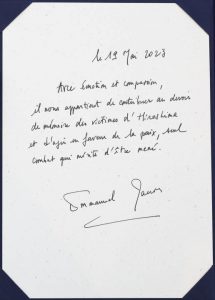 le 19 Mai 2023
Avec émotion et compassion,
il nous appartient de contribuer au devoir
de mémoire des victimes d'Hiroshima
et d'agir en faveur de la paix, seul
combat qui mérite d'être mené.
Emmanuel Macron